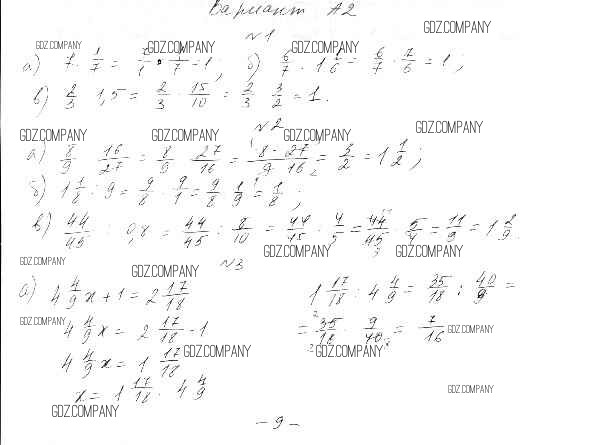 Вариант А2
GDZ.COMPANY
№1
GDZ.COMPANY GDZ.COMPANY GDZ.COMPANY
а) 7 · 1/7 = 7/1 · 1/7 = 1; б) 6/7 · 1 1/6 = 6/7 · 7/6 = 1;
в) 2/3 · 1,5 = 2/3 · 15/10 = 2/3 · 3/2 = 1.
№2
GDZ.COMPANY GDZ.COMPANY GDZ.COMPANY GDZ.COMPANY
а) 8/9 : 16/27 = 8/9 · 27/16 = 8·27/9·16 = 3/2 = 1 1/2;
б) 1 1/8 : 9 = 9/8 : 9/1 = 9/8 · 1/9 = 1/8;
в) 44/45 : 0,8 = 44/45 : 8/10 = 44/45 : 4/5 = 44/45 · 5/4 = 11/9 = 1 2/9.
GDZ.COMPANY GDZ.COMPANY GDZ.COMPANY GDZ.COMPANY
№3
а) 4 4/9 x + 1 = 2 17/18
1 17/18 : 4 4/9 = 35/18 : 40/9 =
GDZ.COMPANY
4 4/9 x = 2 17/18 - 1
= 35/18 · 9/40 = 7/16
GDZ.COMPANY
4 4/9 x = 1 17/18
GDZ.COMPANY GDZ.COMPANY
x = 1 17/18 : 4 4/9
GDZ.COMPANY
GDZ.COMPANY
- 9 -